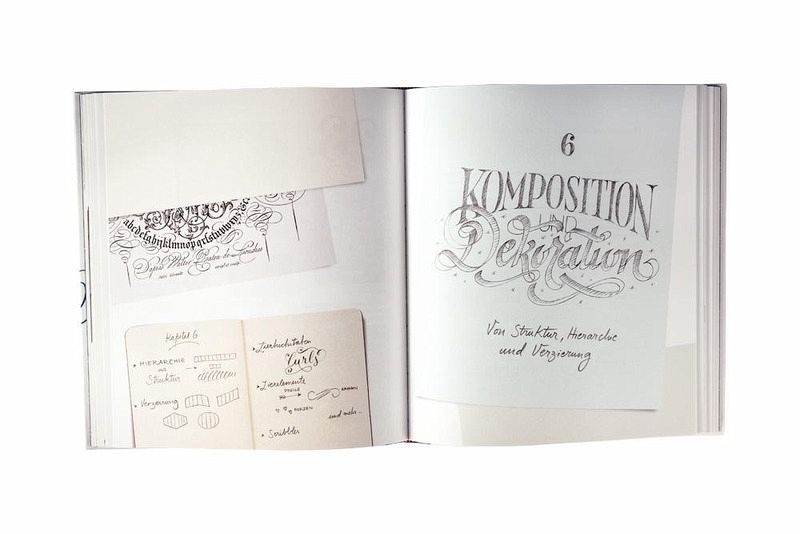 abcdefghijklmnopqrstuvwxyz&c
Kapitel 6
HIERARCHIE
und
Struktur
Verzierung
Zierbuchstaben
Curls
Zierelemente
PFEILE
BANNER
HERZEN
und mehr...
Scribbles
6
KOMPOSITION
UND
Dekoration
Von Struktur, Hierarchie
und Verzierung